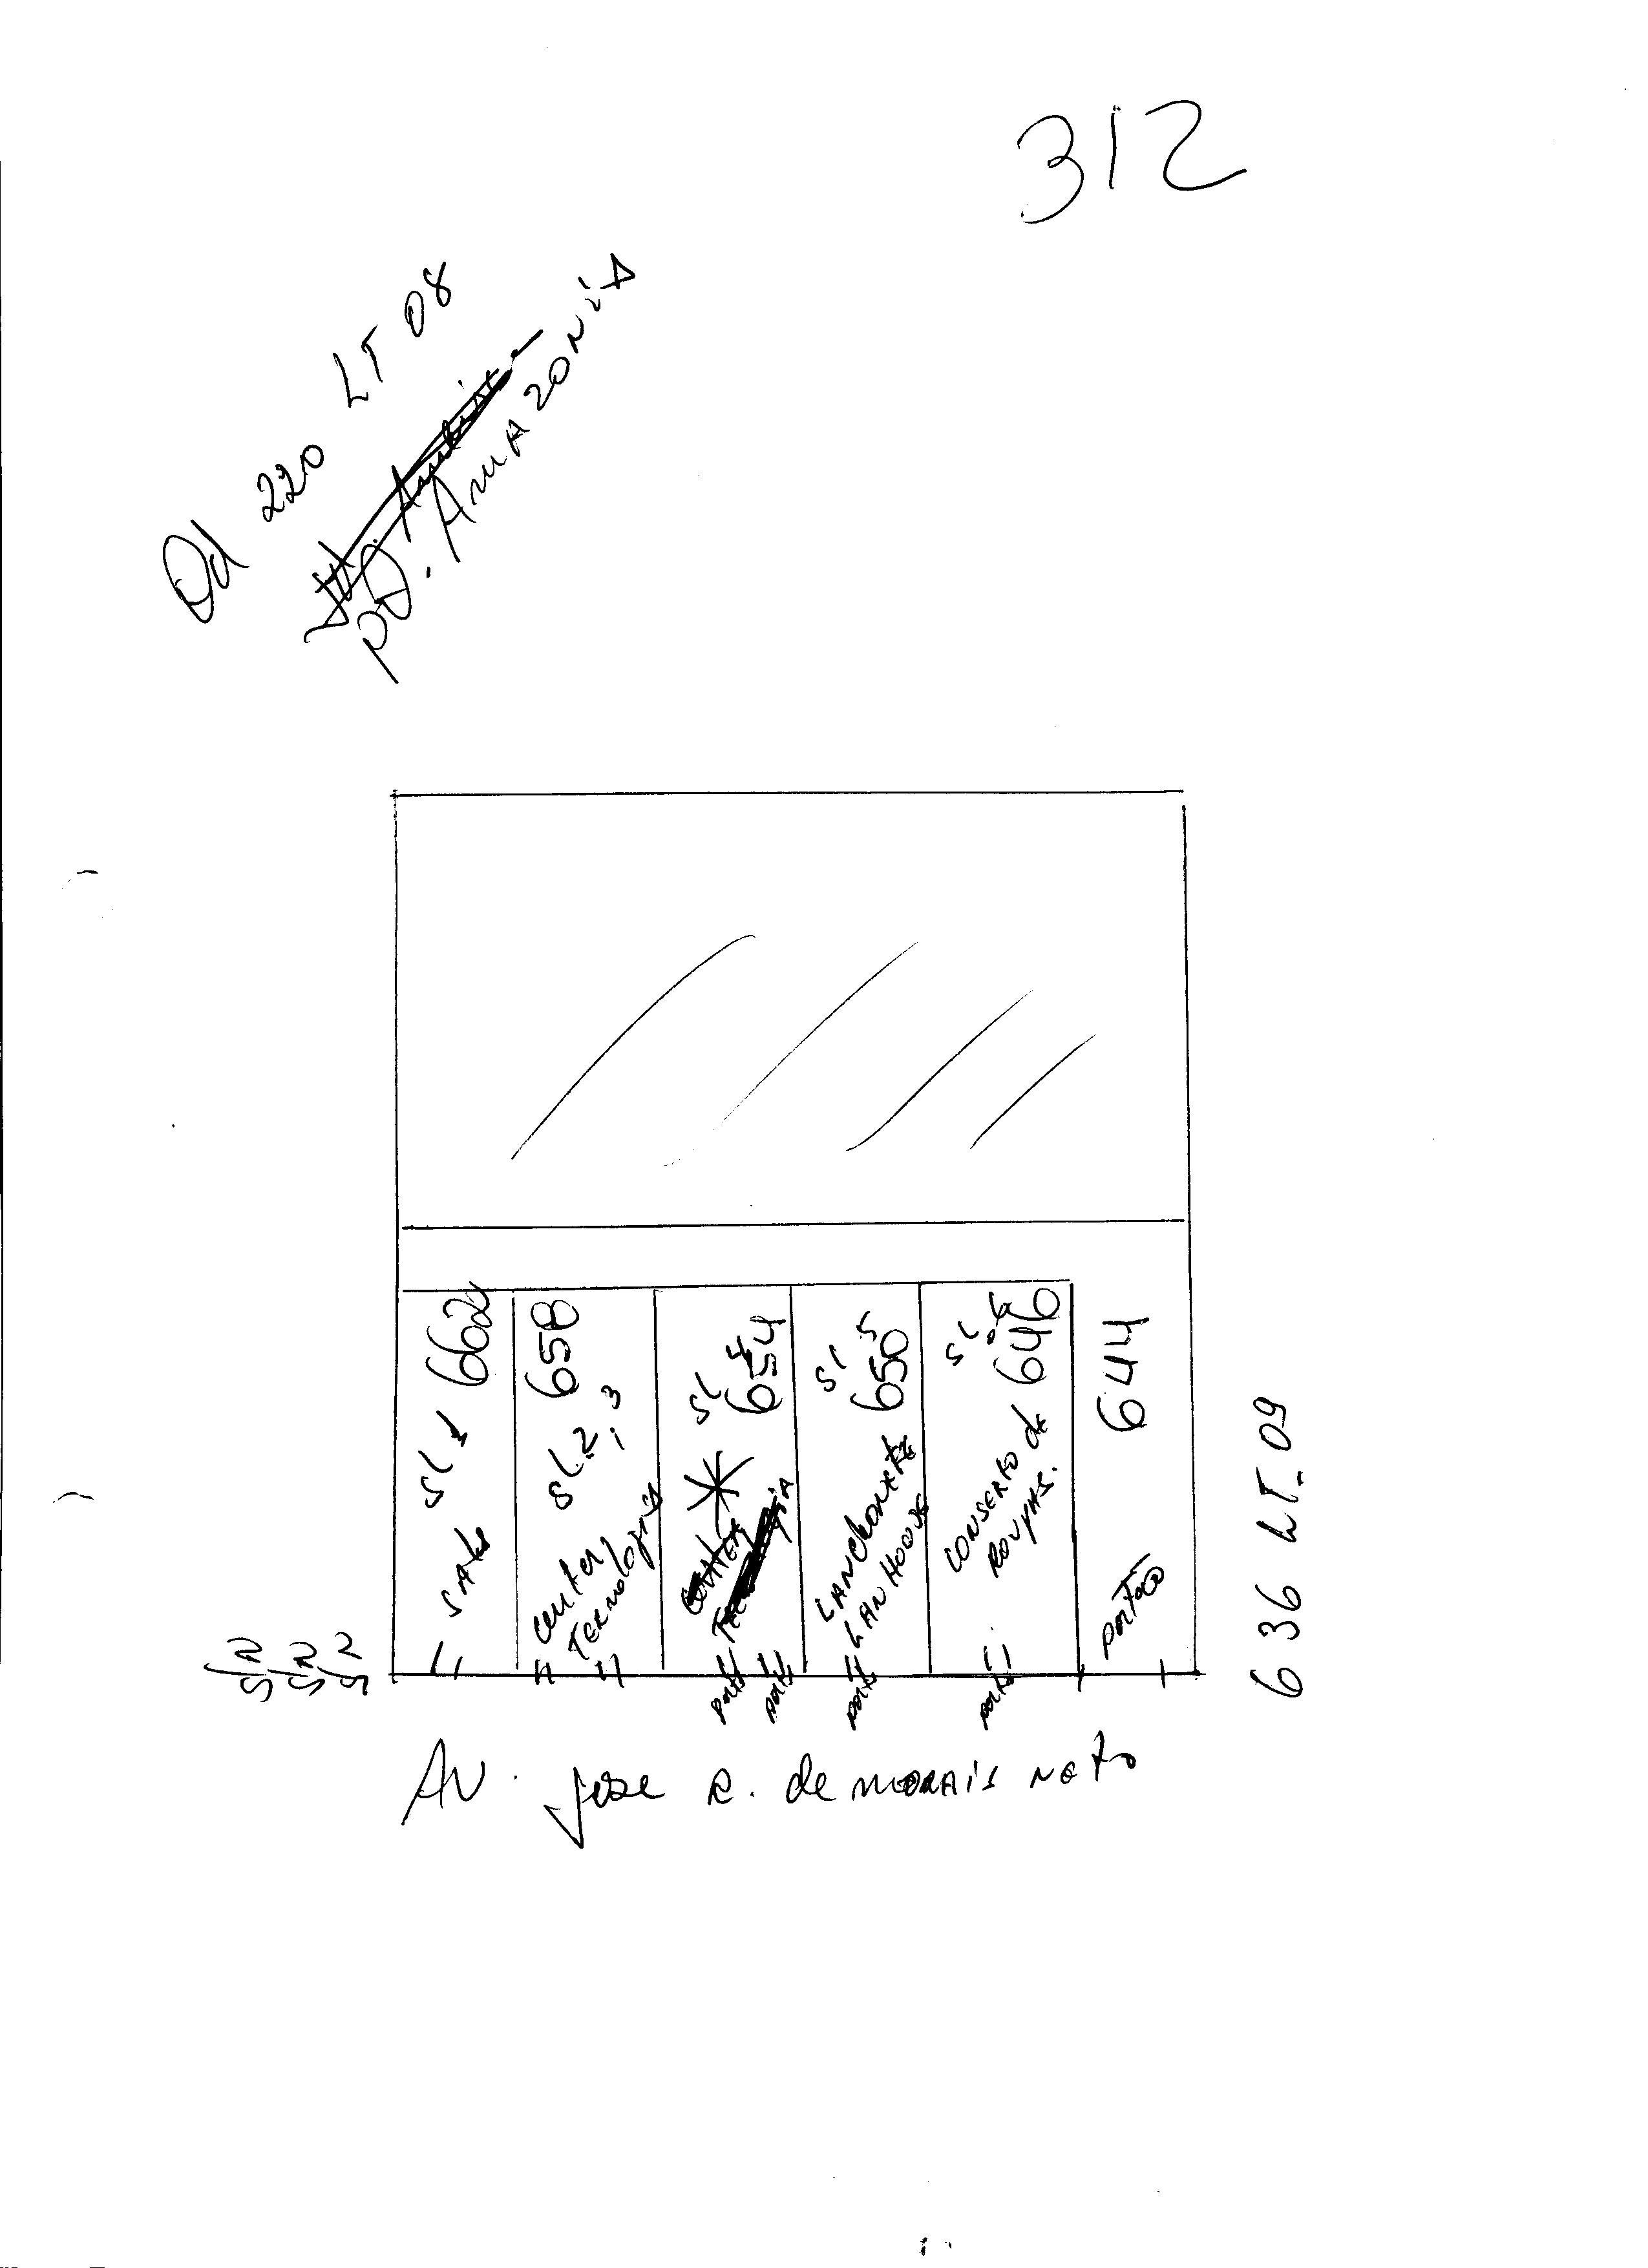 312
Qd 220 LT 08
PQ. AMAZONIA
SL 1 662
SALA
658
SL. 2, 3
Center
TECNologia
SL 4
654
CENTER
SL 5
650
LANchonete
LAN HOUSE
SL. 6
646
CONSERTO de
ROUPAS.
644
portão
porta
porta
porta
porta
S/N
S/N
S/N
636 LT. 09
AV. Jose R. de MORAIS NETO